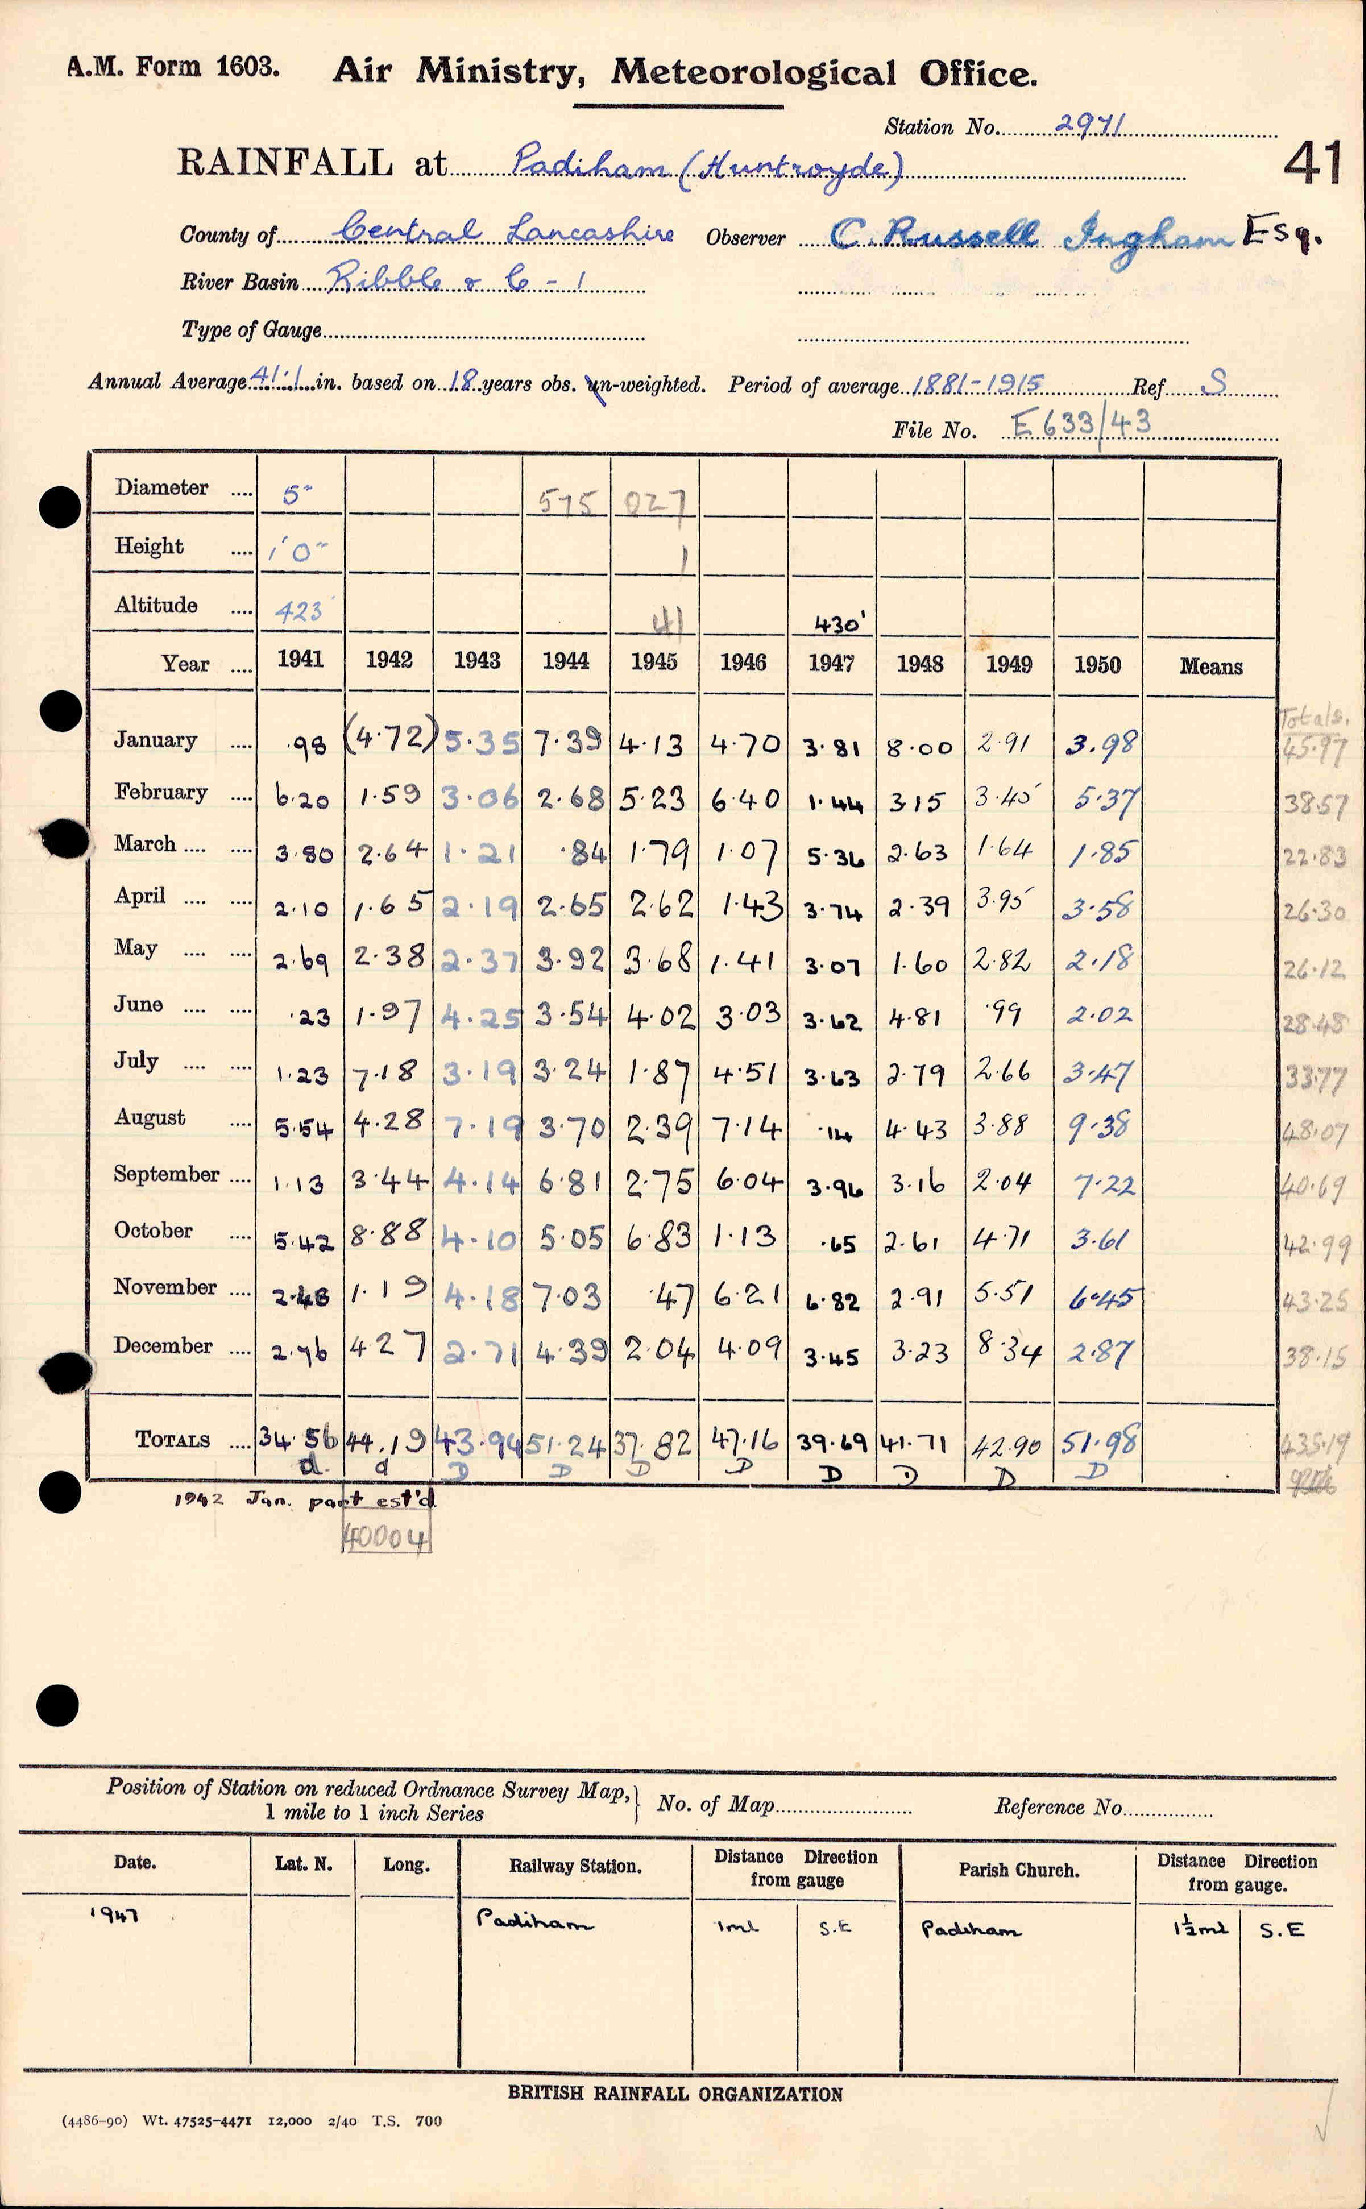 A.M. Form 1603. Air Ministry, Meteorological Office.
Station No. 2971
41
RAINFALL at Padiham (Huntroyde)
County of Central Lancashire Observer C. Russell Ingham Esq.
River Basin Ribble & C - 1
Type of Gauge
Annual Average 41.1 in. based on 18 years obs. un-weighted. Period of average 1881-1915 Ref S
File No. E633/43
Diameter 5" 575 027
Height 1'0" 1
Altitude 423' 41 430'
Year 1941 1942 1943 1944 1945 1946 1947 1948 1949 1950 Means
Totals.
January .98 (4.72) 5.35 7.39 4.13 4.70 3.81 8.00 2.91 3.98 45.97
February 6.20 1.59 3.06 2.68 5.23 6.40 1.44 3.15 3.45 5.37 38.57
March 3.80 2.64 1.21 .84 1.79 1.07 5.36 2.63 1.64 1.85 22.83
April 2.10 1.65 2.19 2.65 2.62 1.43 3.74 2.39 3.95 3.58 26.30
May 2.69 2.38 2.37 3.92 3.68 1.41 3.07 1.60 2.82 2.18 26.12
June .23 1.97 4.25 3.54 4.02 3.03 3.62 4.81 .99 2.02 28.48
July 1.23 7.18 3.19 3.24 1.87 4.51 3.63 2.79 2.66 3.47 33.77
August 5.54 4.28 7.19 3.70 2.39 7.14 .14 4.43 3.88 9.38 48.07
September 1.13 3.44 4.14 6.81 2.75 6.04 3.96 3.16 2.04 7.22 40.69
October 5.42 8.88 4.10 5.05 6.83 1.13 .65 2.61 4.71 3.61 42.99
November 2.48 1.19 4.18 7.03 .47 6.21 6.82 2.91 5.51 6.45 43.25
December 2.76 4.27 2.71 4.39 2.04 4.09 3.45 3.23 8.34 2.87 38.15
TOTALS 34.56 44.19 43.94 51.24 37.82 47.16 39.69 41.71 42.90 51.98 435.19
d. d D D D D D D D D
1942 Jan. part est'd
40004
Position of Station on reduced Ordnance Survey Map, 1 mile to 1 inch Series No. of Map Reference No.
Date. Lat. N. Long. Railway Station. Distance from gauge Direction Parish Church. Distance from gauge. Direction
1947 Padiham 1ml S.E Padiham 1½ml S.E
BRITISH RAINFALL ORGANIZATION
(4486-90) Wt. 47525-4471 12,000 2/40 T.S. 700